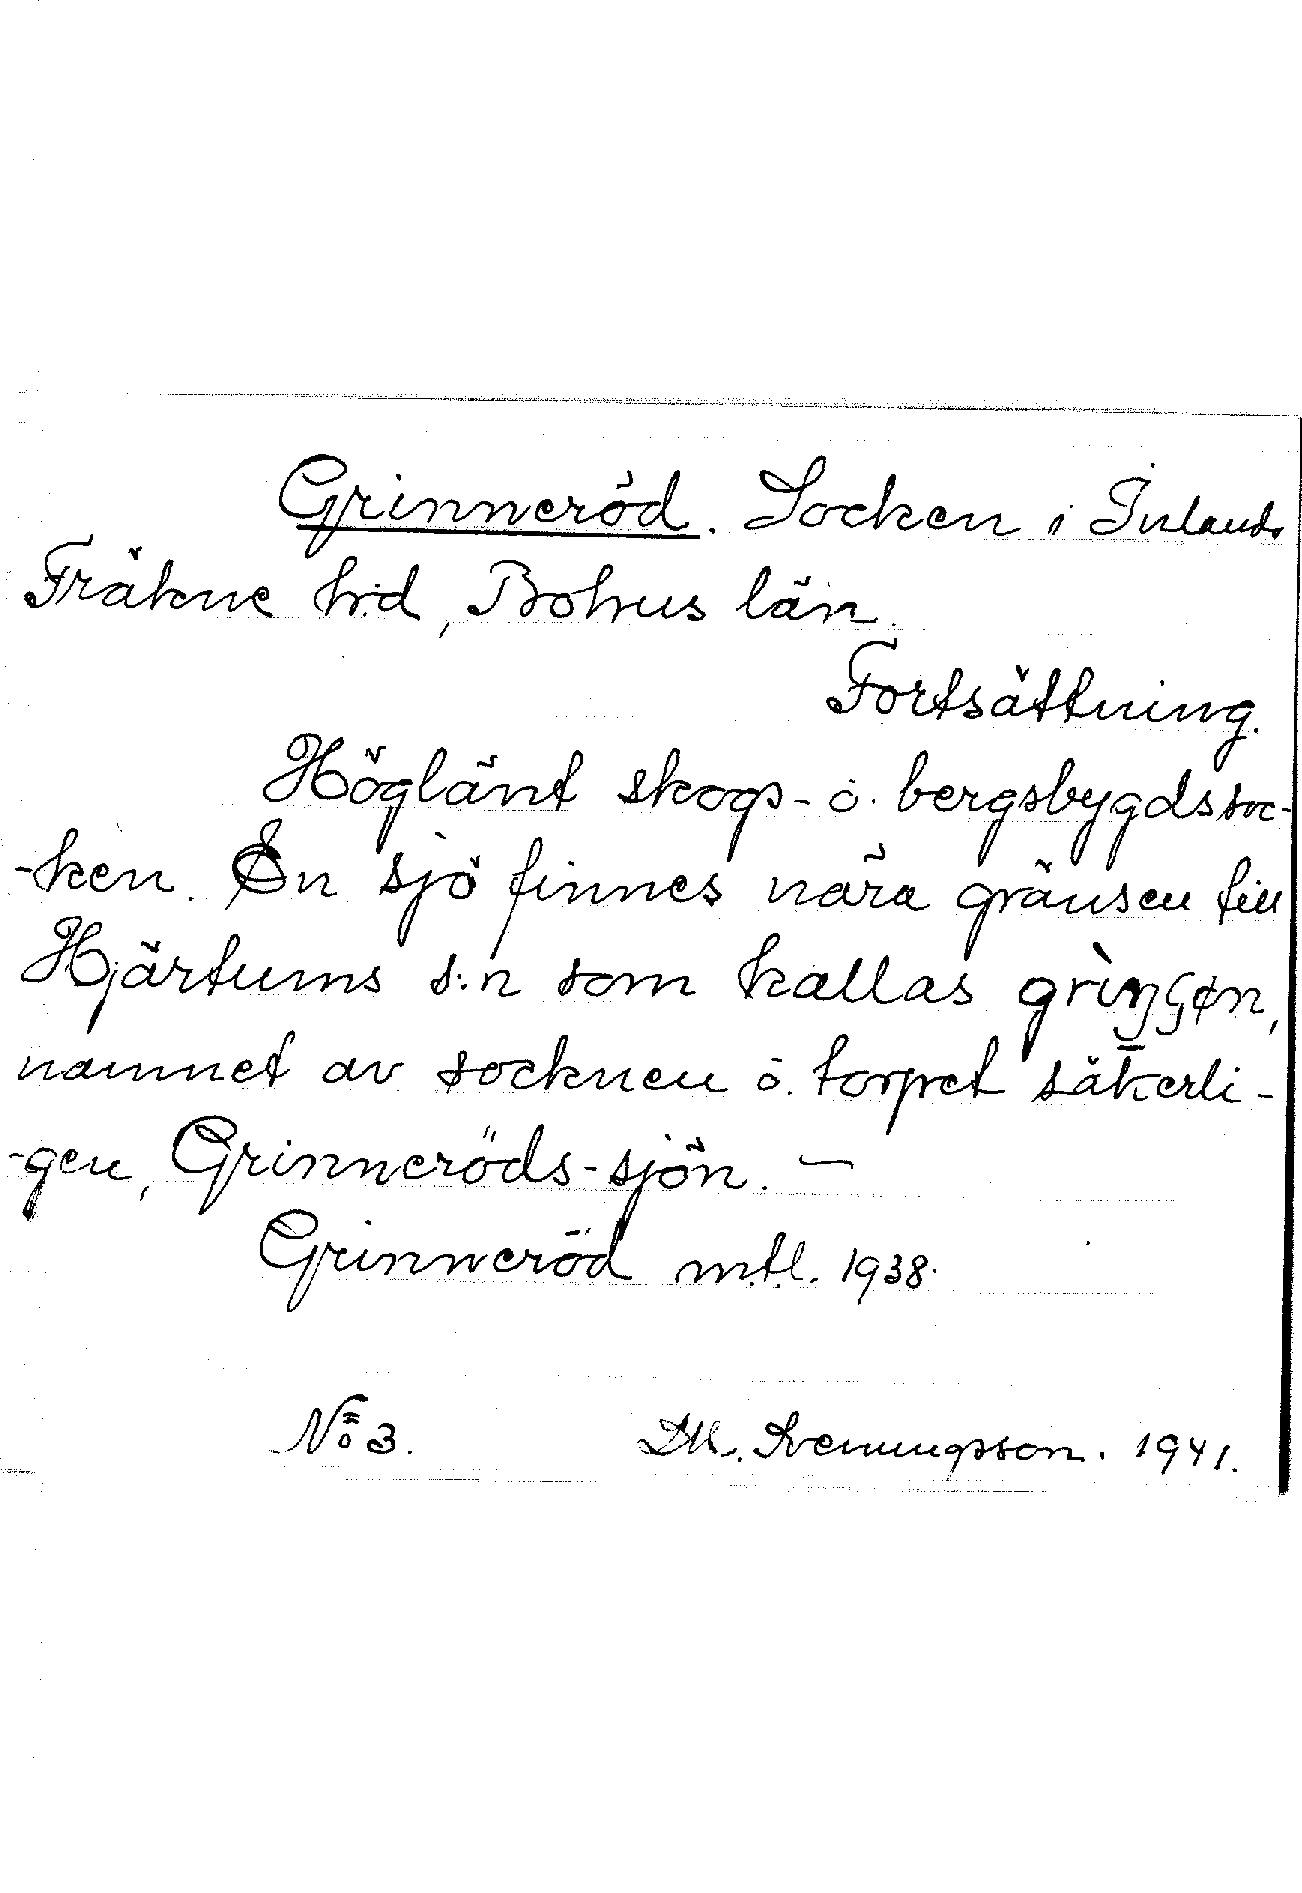 Grinneröd. Socken i Inlands
Fräkne h:d, Bohus län.
Fortsättning.
Höglänt skogs- o. bergsbygdssoc-
-ken. En sjö finnes nära gränsen till
Hjärtums s:n som kallas
namnet av socknen o. torpet säkerli-
-gen, Grinneröds-sjön. —
Grinneröd mtl. 1938.
No 3. 1941.